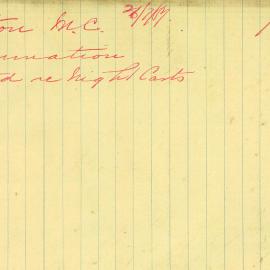 ton M.C. 26/7/17
mation
d re Night Carts